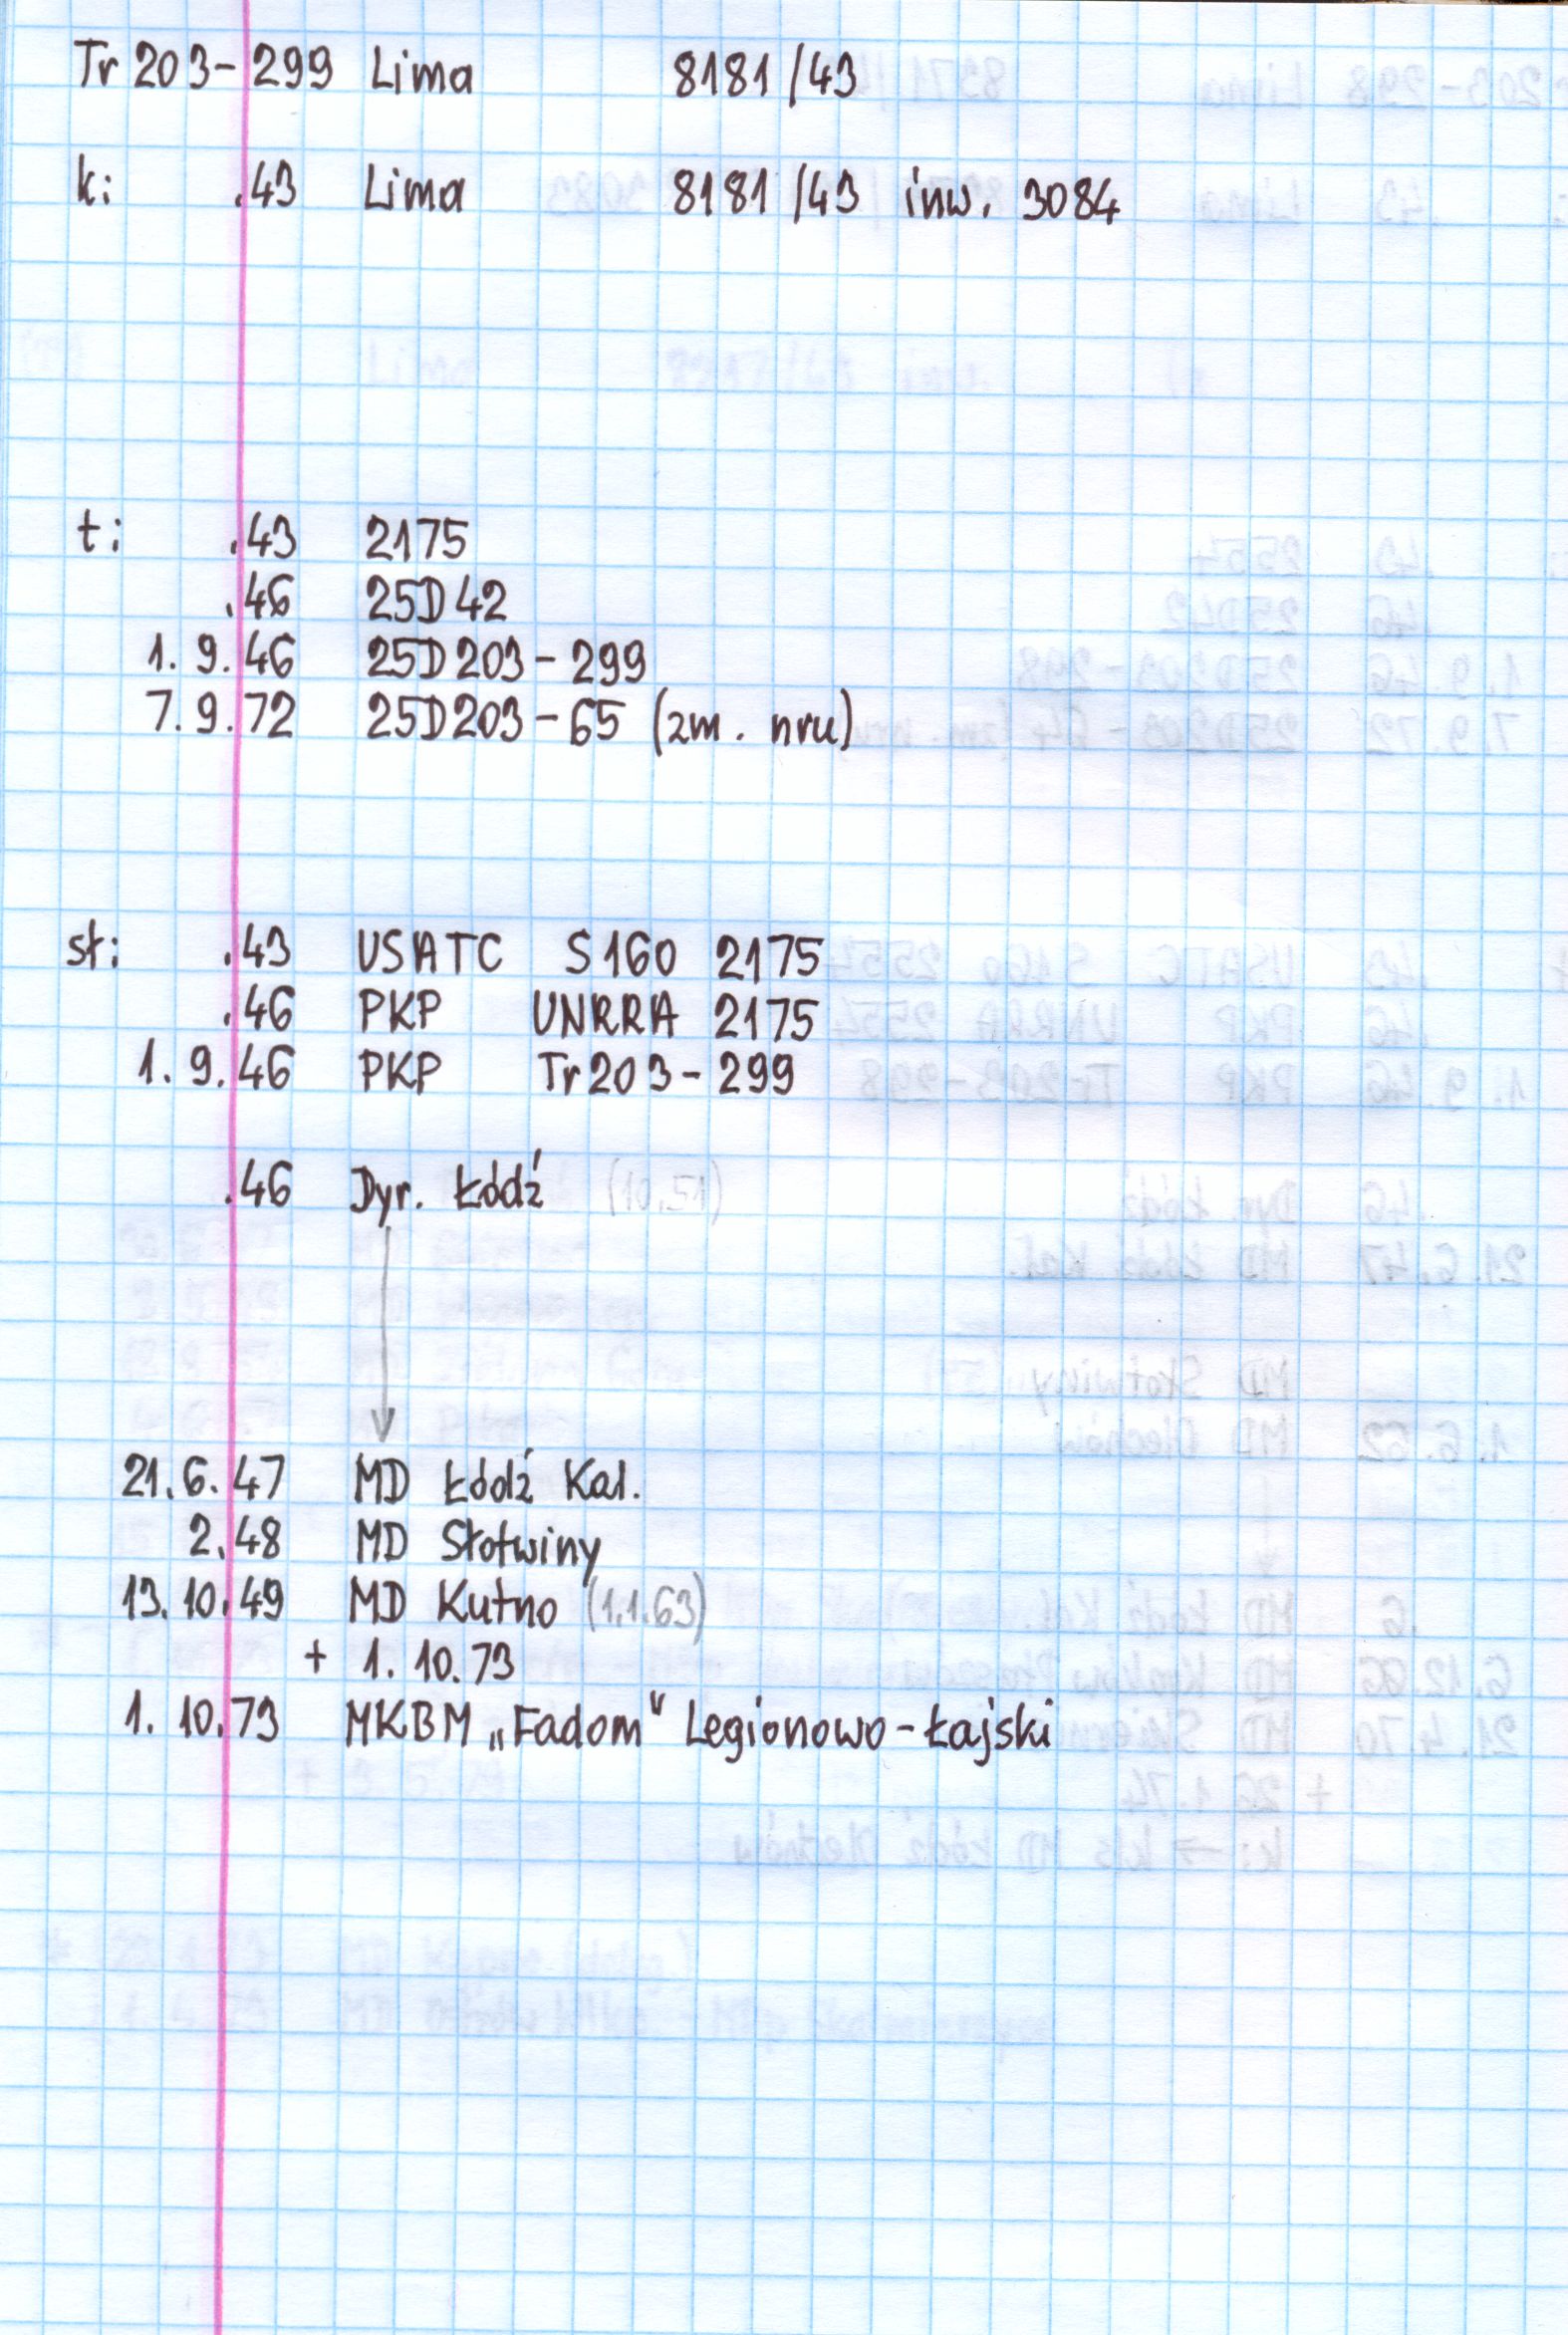 Tr 203-299 Lima 8181/43
k: .43 Lima 8181/43 inw. 3084
t: .43 2175
.46 25D42
1.9.46 25D203-299
7.9.72 25D203-65 (zm. nru)
st: .43 USATC S160 2175
.46 PKP UNRRA 2175
1.9.46 PKP Tr203-299
.46 Dyr. Łódź (10.51)
21.6.47 MD Łódź Kal.
2.48 MD Słotwiny
13.10.49 MD Kutno (1.1.63)
+ 1.10.73
1.10.73 MKBM „Fadom" Legionowo-Łajski